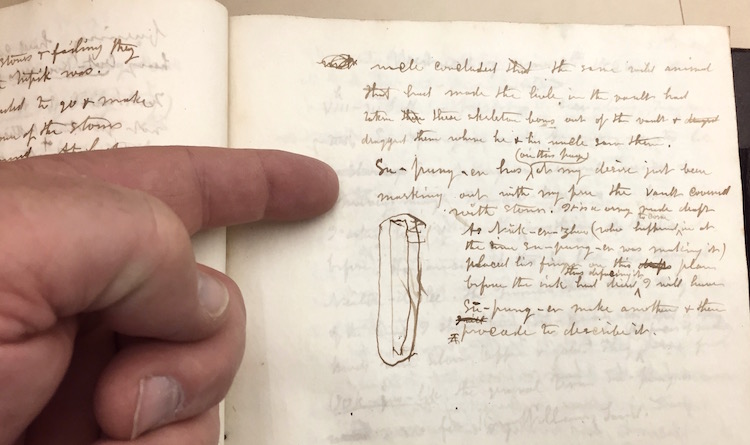 stones & failing they
Tŭpik was.
to go & make
one of the stones
uncle concluded that the same wild animal
that had made the hole in the vault had
taken these skeleton boys out of the vault &
dragged them where he & his uncle saw them.
(on this page)
Su-pung-er has at my desire just been
marking out with my pen the vault covered
with stones. It is a very rude draft
As Nuk-er-zhoo (who happened in at
the time Su-pung-er was making it)
placed his finger on the plan
thus defacing it
before the ink had dried, I will have
Su-pung-er make another & then
procede to describe it.